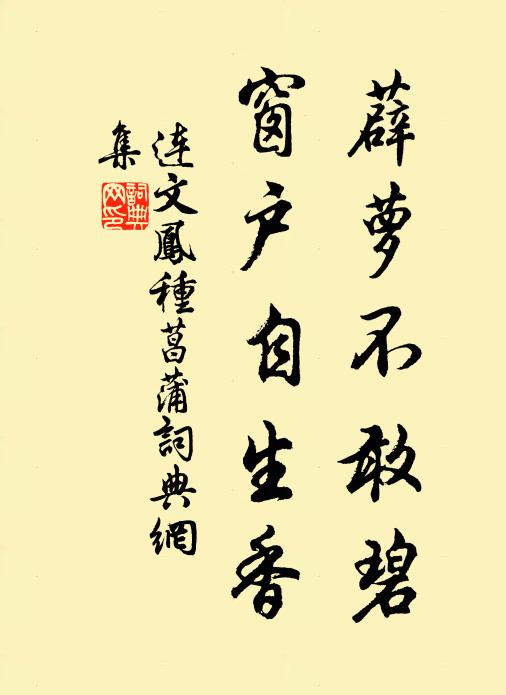 薜萝不敢碧
窗户自生香
连文鳳種菖蒲詞典網
集
詞典
网印